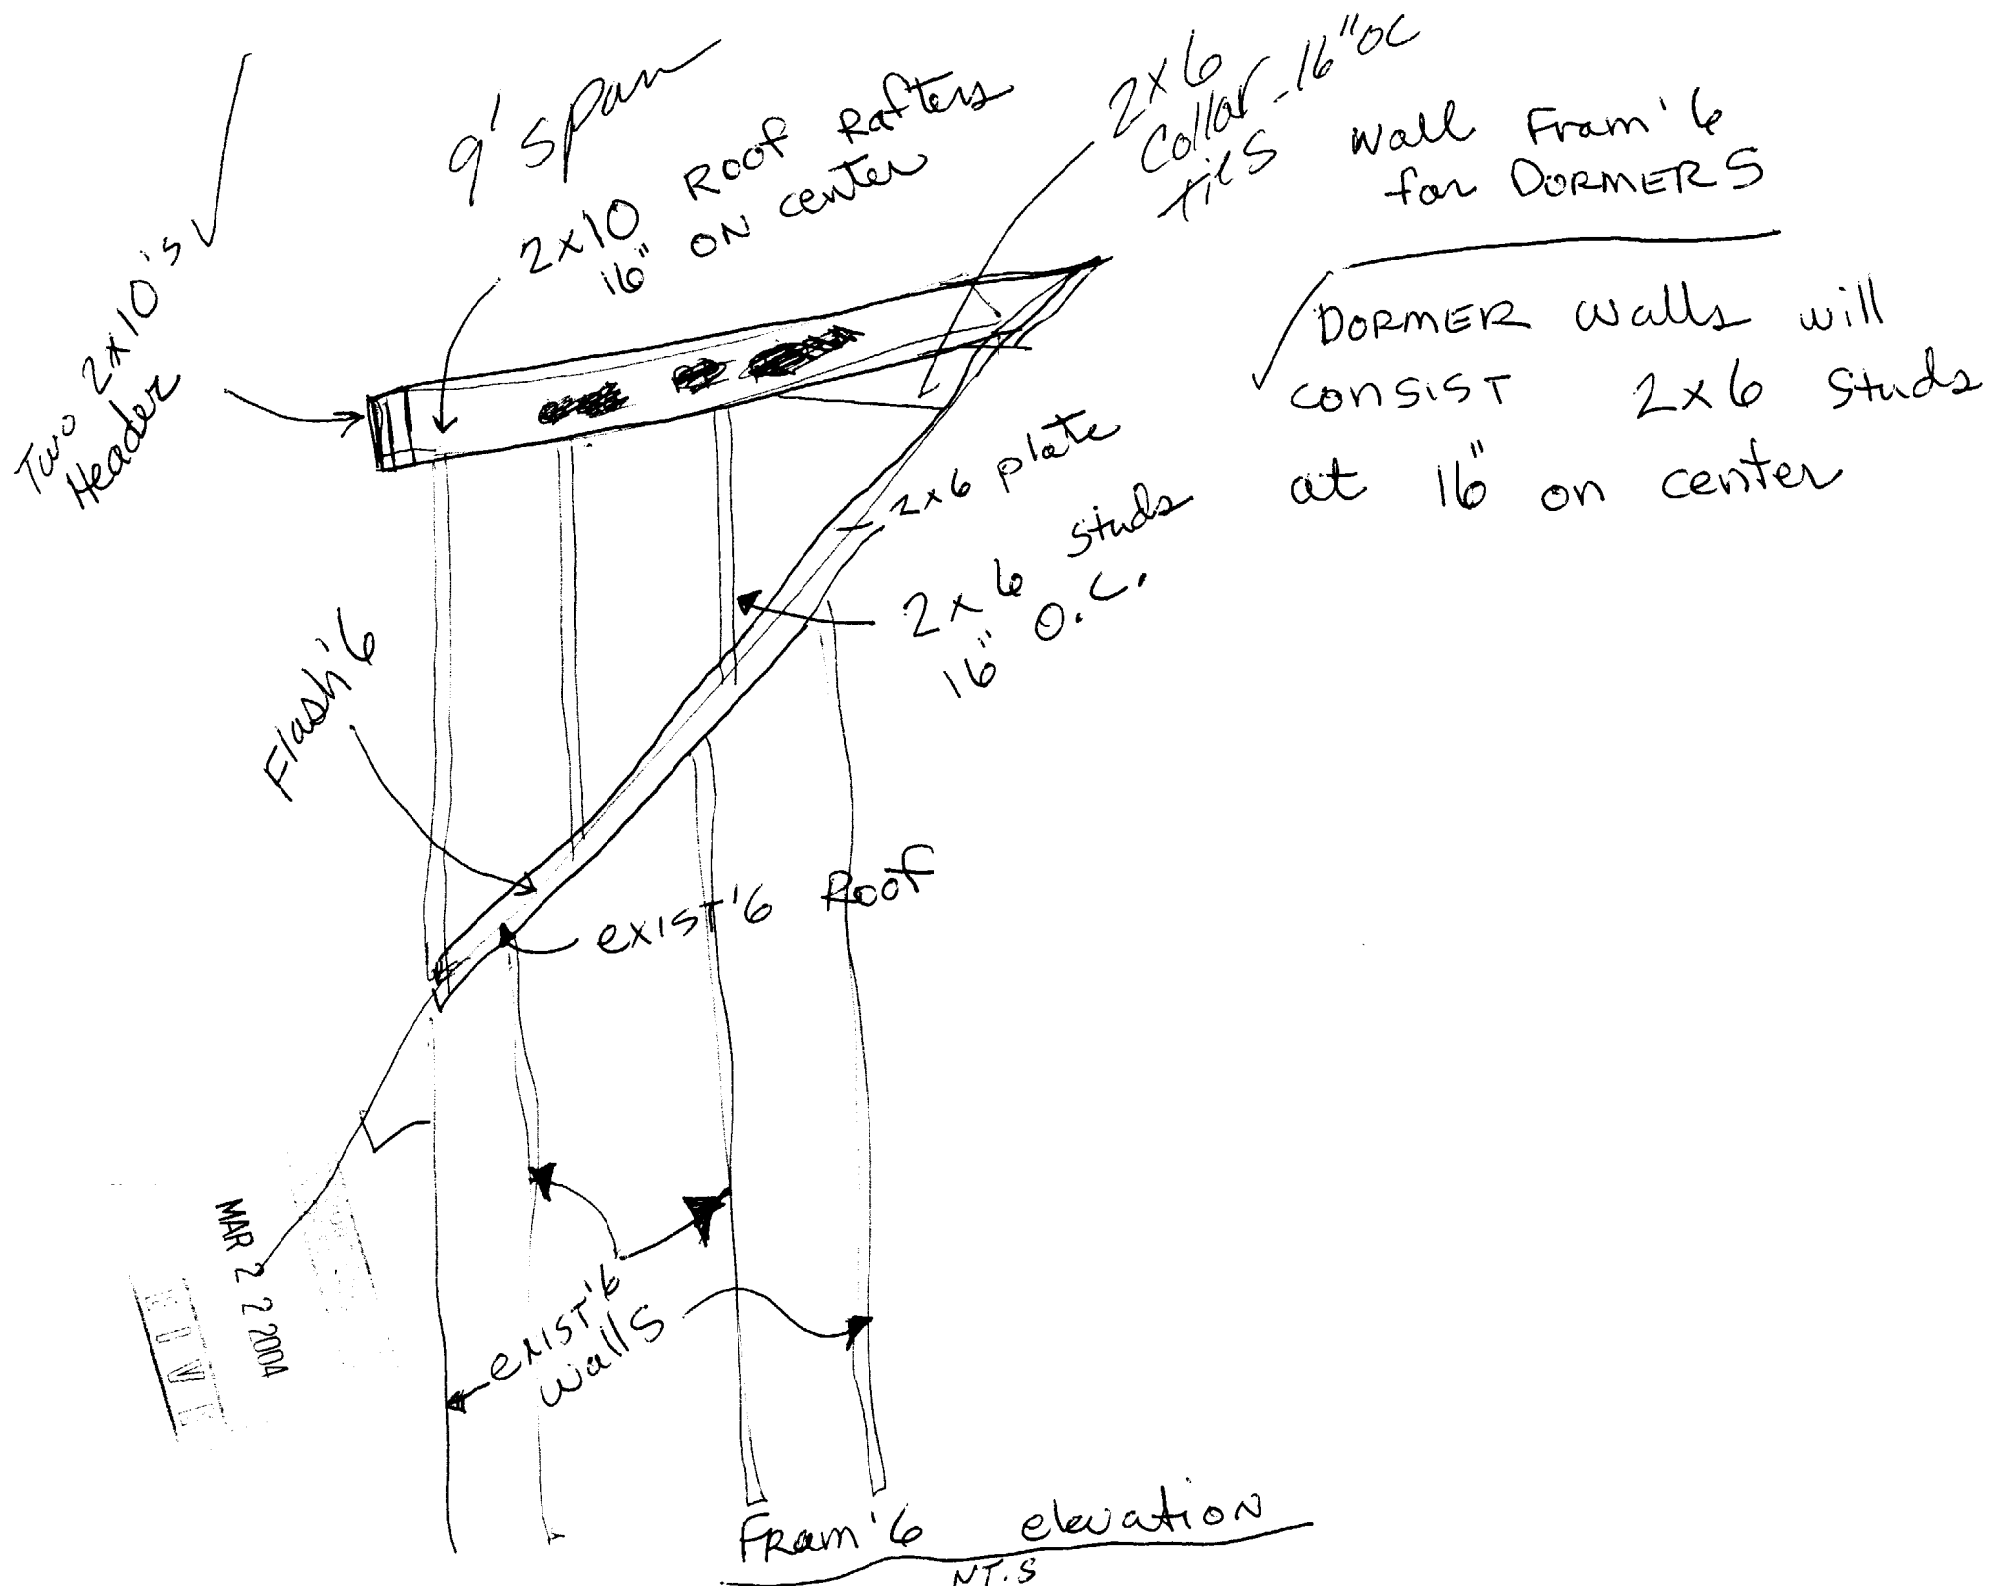 9' span
2x10 Roof Rafters
16" ON center
2x6
Collar - 16" OC
ties
Wall Fram'G
for DORMERS
Two 2x10's
Header
DORMER walls will
CONSIST 2x6 Studs
at 16" on center
2x6 plate
2x6 studs
16" O.C.
Flash'G
EXIST'G Roof
EXIST'G
Walls
MAR 22 2004
FRam'G elevation
NT.S